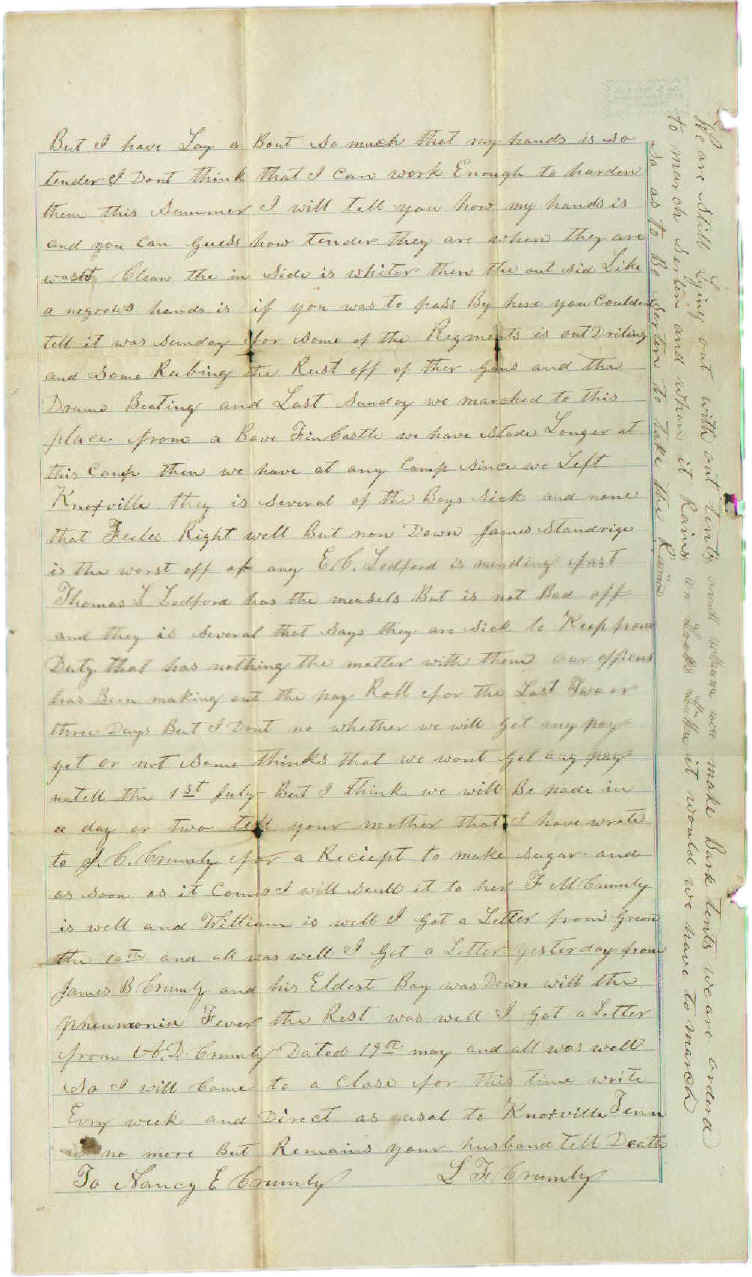 But I have Lay a Bout So much that my hands is So
tender I Dont think that I can work Enough to harden
them this Summer I will tell you how my hands is
and you can Guess how tender they are when they are
Clean the in Side is whiter then the out Sid Like
a negrows hands is if you was to pass By here you Couldent
tell it was Sunday for Some of the Regments is out Driling
and Some Rubing the Rust off of ther Guns and the
Drums Beating and Last Sunday we marched to this
place from a Bove Fin Castle we have Stade Longer at
this Camp then we have at any Camp Since we Left
Knoxville they is Several of the Boys Sick and none
that Feeles Right well But non Down James Standrige
is the worst off of any E. C. Ledford is mending fast
Thomas L Ledford has the meusels But is not Bad off
and they is Several that Says they are Sick to Keep from
Duty that has nothing the matter with them our officers
has Been making out the pay Roll for the Last Two or
three Days But I Dont no whether we will Get any pay
yet or not Some thinks that we wont Get any pay
untell the 1st July But I think we will Be pade in
a day or two tell your mother that I have wrote
to J. C. Crumly for a Reciept to make Sugar and
as Soon as it Comes I will Send it to her F M Crumly
is well and William is well I Got a Letter from Green
the 10th and all was well I Got a Letter yesterday from
James B Crumly and his Eldest Boy was Down with the
pneumonia Fever the Rest was well I Got a Letter
from W. D. Crumly Dated 19th may and all was well
So I will Come to a Close for this time write
Evry week and Direct as usal to Knoxville Tenn
no more But Remains your husband tell Death
To Nancy E Crumly L F Crumly
We are Still Lying out with out Tents and when we make Bark tents we are orderd
to march Serten and when it Rains or Looks Like it would we have to march
So as to Be Serten to take the Rain